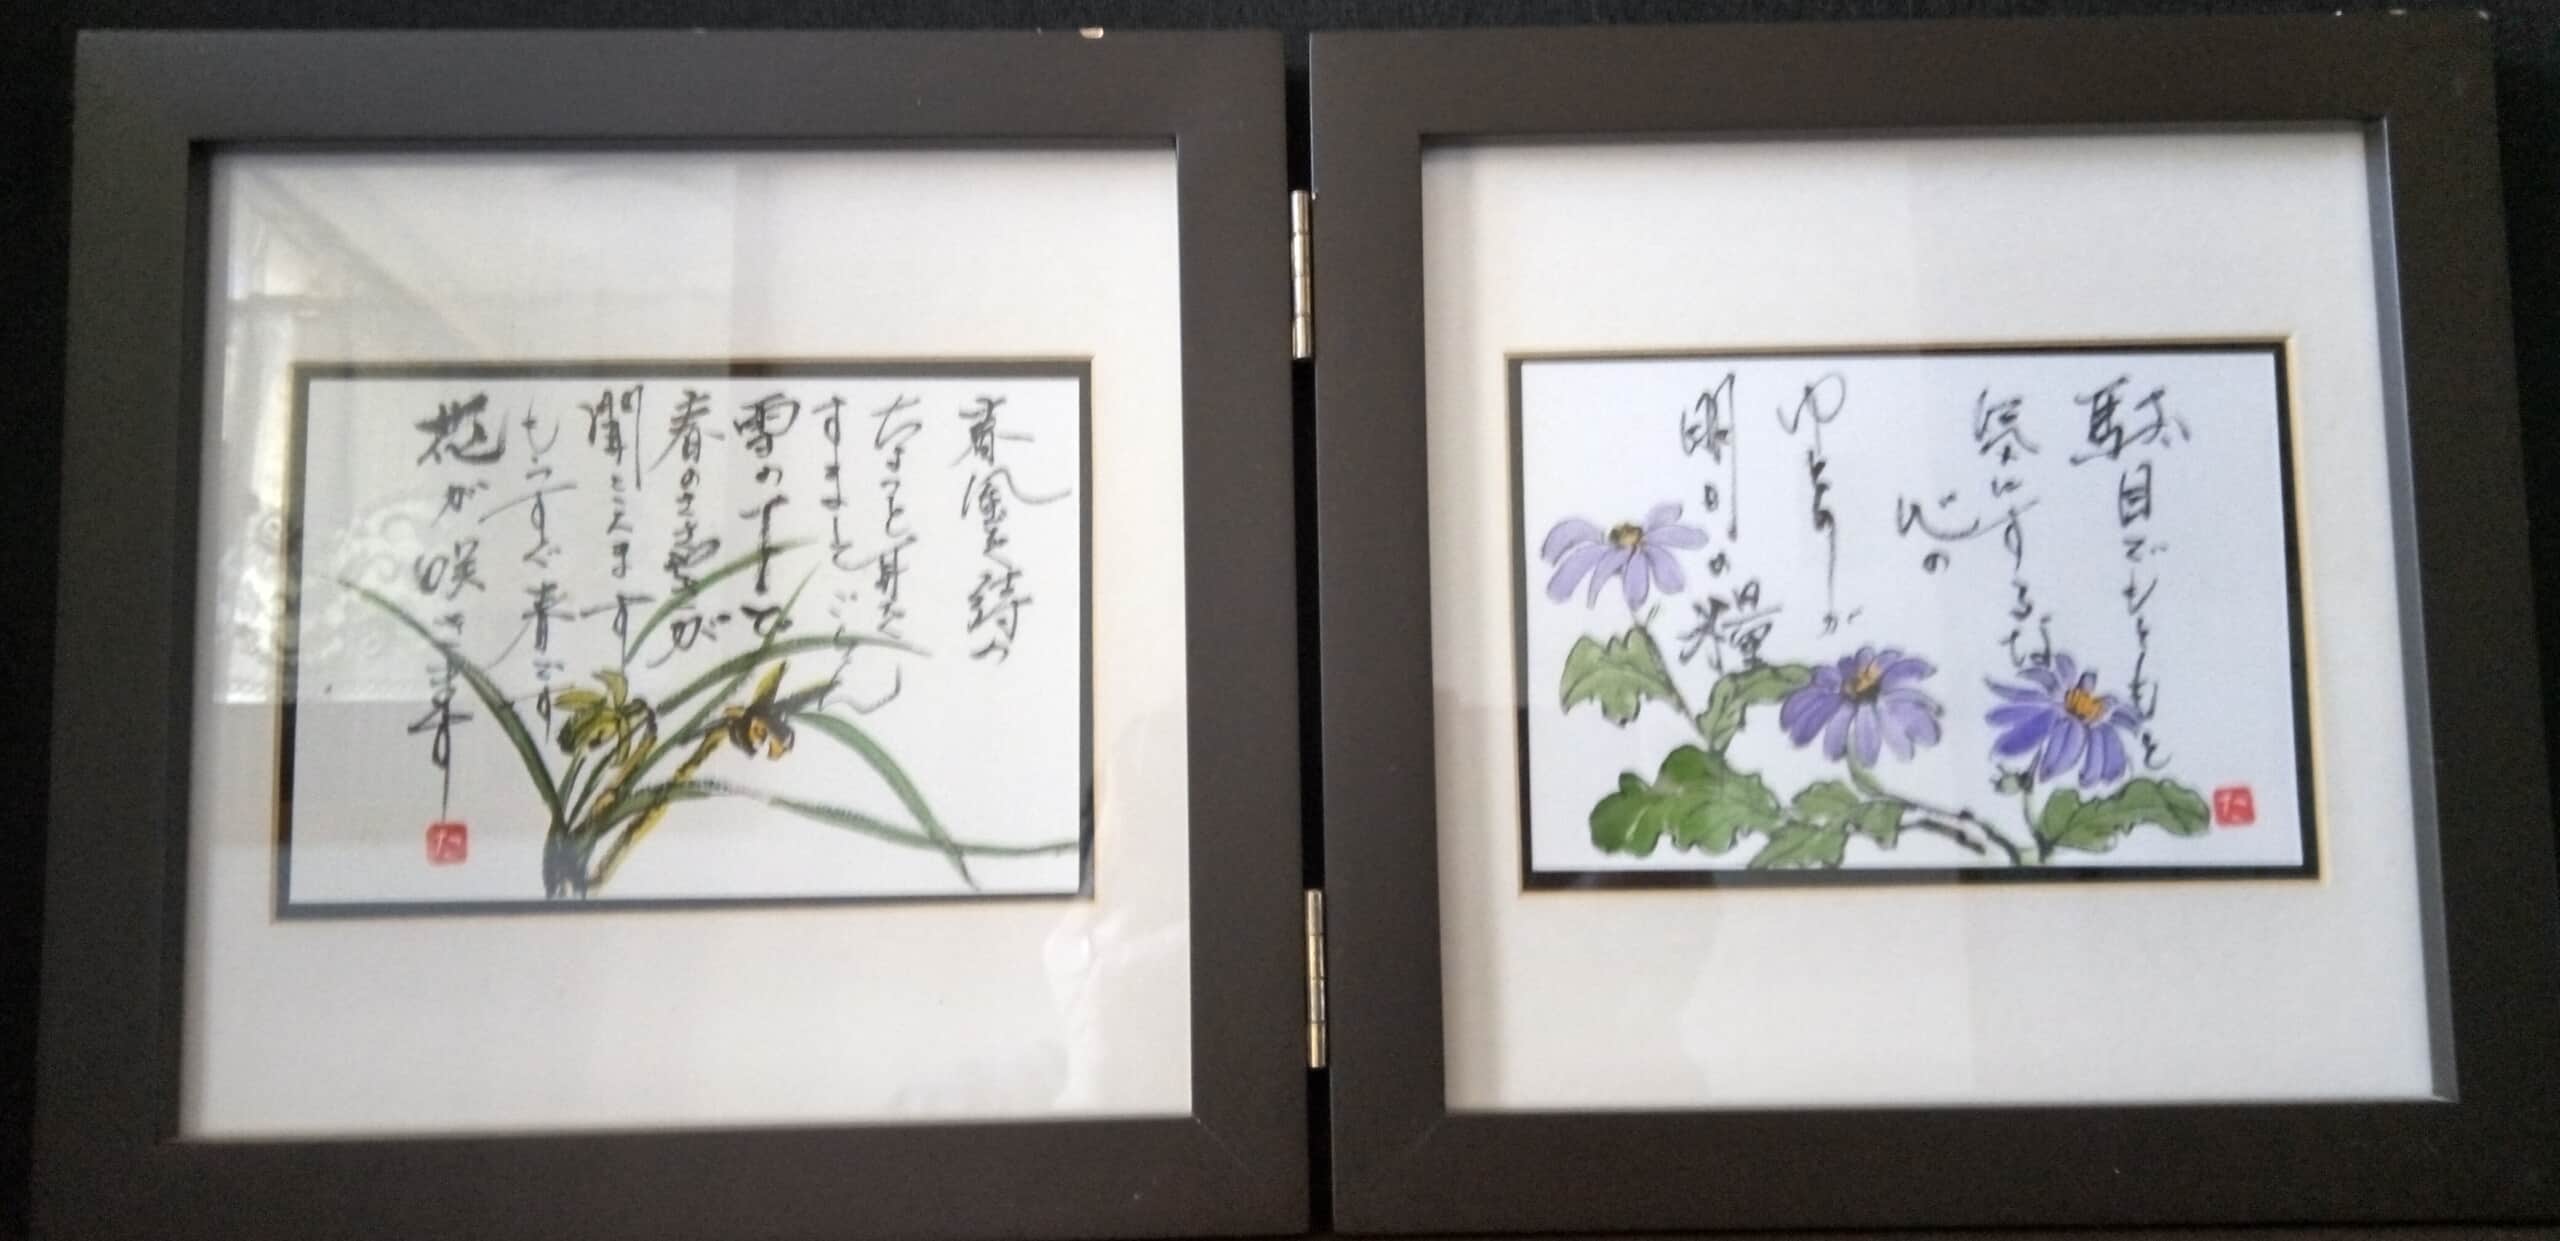 春風を待つ
ちょっと耳を
すましてごらん
雪の下で
春のささやきが
聞こえます
もうすぐ春です
花が咲きます
た
駄目でもともと
気にするな
心の
ゆとりが
明日の糧
た